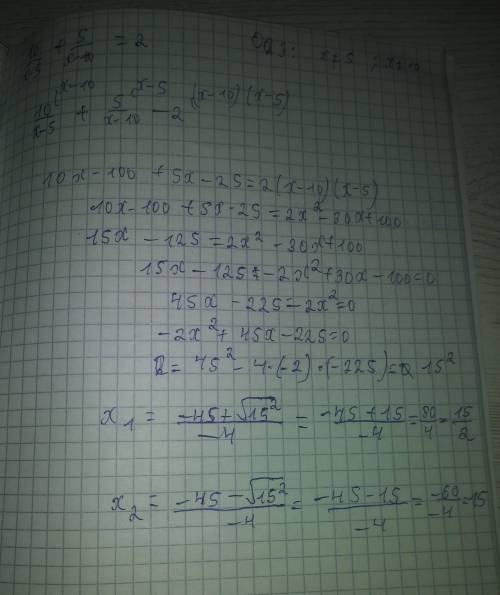 10/(x-5) + 5/(x-10) = 2 ОДЗ: x≠5 ; x≠10
10/(x-5) ^(x-10 + 5/(x-10) ^(x-5 - 2 ^(x-10)(x-5)
10x-100 + 5x-25 = 2(x-10)(x-5)
10x-100 + 5x-25 = 2x²-30x+100
15x - 125 = 2x² - 30x+100
15x - 125 - 2x²+30x-100=0
45x - 225 - 2x²=0
-2x²+45x-225=0
D = 45² - 4·(-2)·(-225) = 15²
x₁ = (-45+√15²)/(-4) = (-45+15)/(-4) = 80/4 = 15/2
x₂ = (-45-√15²)/(-4) = (-45-15)/(-4) = -60/-4 = 15